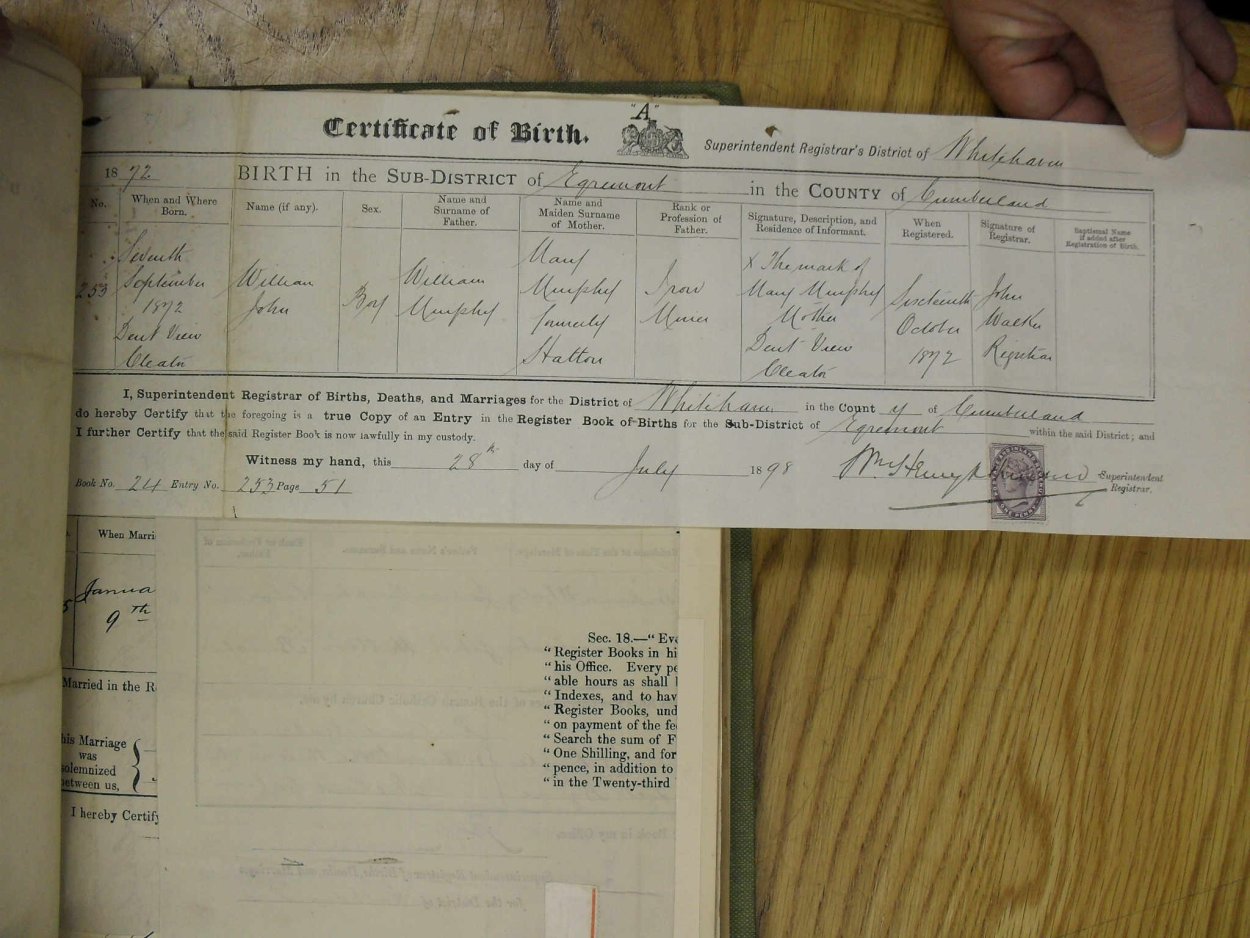 "A"
Certificate of Birth. Superintendent Registrar's District of Whitehaven
1872 BIRTH in the SUB-DISTRICT of Egremont in the COUNTY of Cumberland
No. When and Where Born. Name (if any). Sex. Name and Surname of Father. Name and Maiden Surname of Mother. Rank or Profession of Father. Signature, Description, and Residence of Informant. When Registered. Signature of Registrar. Baptismal Name if added after Registration of Birth.
253 Seventh September 1872 Dent View Cleator William John Boy William Murphy Mary Murphy formerly Hatton Iron Miner X The mark of Mary Murphy Mother Dent View Cleator Sixteenth October 1872 John Walker Registrar
I, Superintendent Registrar of Births, Deaths, and Marriages for the District of Whitehaven in the County of Cumberland
do hereby Certify that the foregoing is a true Copy of an Entry in the Register Book of Births for the Sub-District of Egremont within the said District; and
I further Certify that the said Register Book is now lawfully in my custody.
Witness my hand, this 28th day of July 1898 Wm Henry Superintendent Registrar.
Book No. 24 Entry No. 253 Page 51
ONE PENNY
When Marri
5 Janua
9th
Married in the R
his Marriage
was
solemnized
between us,
I hereby Certify
Sec. 18.—"Eve
"Register Books in hi
"his Office. Every pe
"able hours as shall
"Indexes, and to hav
"Register Books, und
"on payment of the fe
"Search the sum of F
"One Shilling, and for
"pence, in addition to
"in the Twenty-third